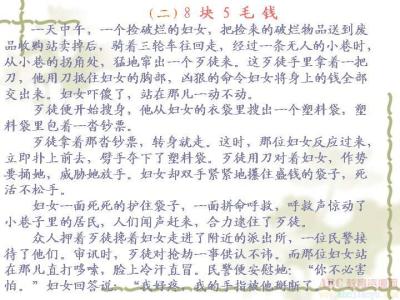 (二)8 块 5 毛 钱
一天中午，一个捡破烂的妇女，把捡来的破烂物品送到废
品收购站卖掉后，骑着三轮车往回走，经过一条无人的小巷时，
从小巷的拐角处，猛地窜出一个歹徒来。这歹徒手里拿着一把
刀，他用刀抵住妇女的胸部，凶狠的命令妇女将身上的钱全部
交出来。妇女吓傻了，站在那儿一动不动。
歹徒便开始搜身，他从妇女的衣袋里搜出一个塑料袋，塑
料袋里包着一沓钞票。
歹徒拿着那沓钞票，转身就走。这时，那位妇女反应过来，
立即扑上前去，劈手夺下了塑料袋。歹徒用刀对着妇女，作势
要捅她，威胁她放手。妇女却双手紧紧地攥住盛钱的袋子，死
活不松手。
妇女一面死死的护住袋子，一面拼命呼救，呼救声惊动了
小巷子里的居民，人们闻声赶来，合力逮住了歹徒。
众人押着歹徒搀着妇女走进了附近的派出所，一位民警接
待了他们。审讯时，歹徒对抢劫一事供认不讳。而那位妇女站
在那儿直打哆嗦，脸上冷汗直冒。民警便安慰她：“你不必害
怕。”妇女回答说：“我好疼，我的手指被他掰断了